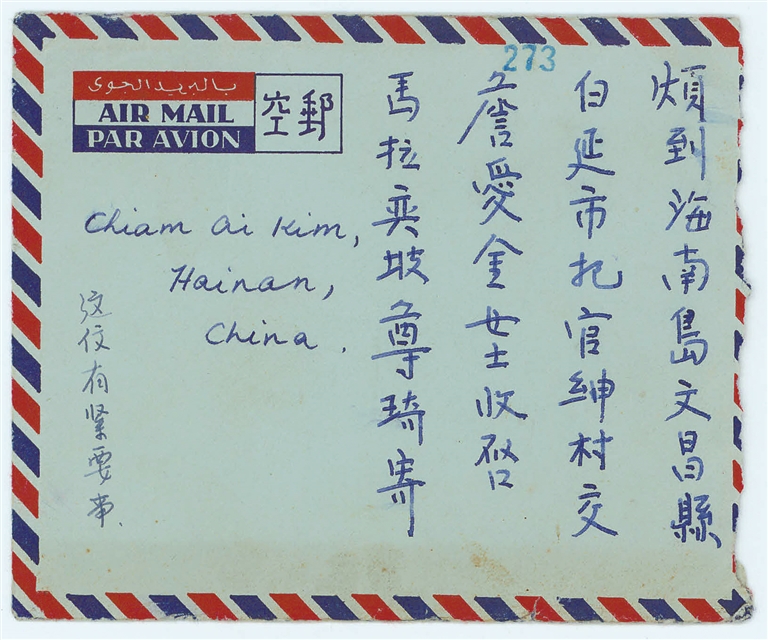 273
بالبريد الجوى
AIR MAIL
PAR AVION
空郵
煩到海南島文昌縣
白延市官紳村交
詹愛金女士收啓
馬拉奕坡尊琦寄
Chiam Ai Kim,
Hainan,
China.
这伩有紧要事.